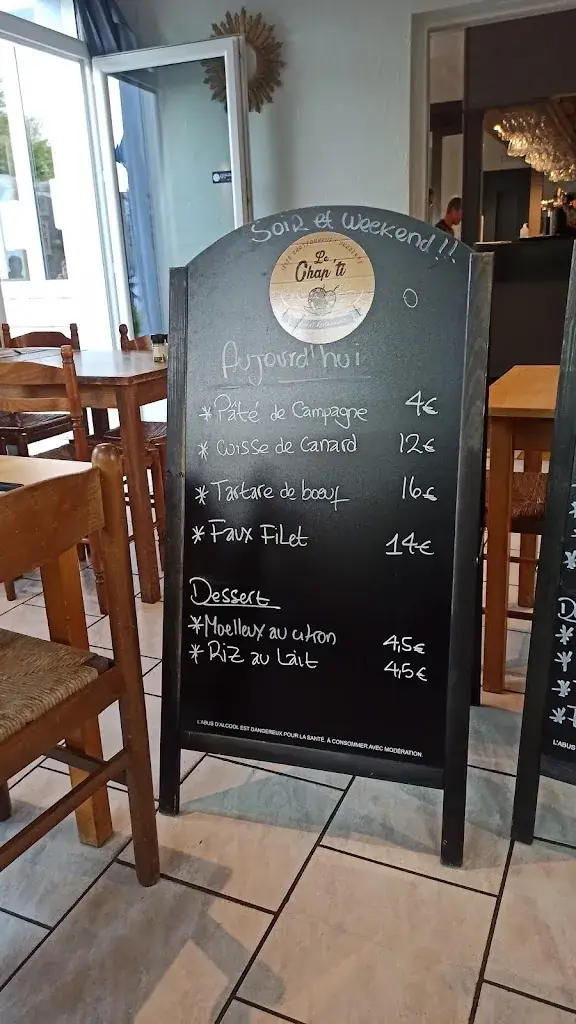 Soir et Weekend !!
Le
Chap'ti
Aujourd'hui
* Pâté de Campagne 4€
* Cuisse de Canard 12€
* Tartare de boeuf 16€
* Faux Filet 14€
Dessert
* Moelleux au citron 4,5€
* Riz au Lait 4,5€
L'ABUS D'ALCOOL EST DANGEREUX POUR LA SANTÉ. À CONSOMMER AVEC MODÉRATION.
L'ABUS